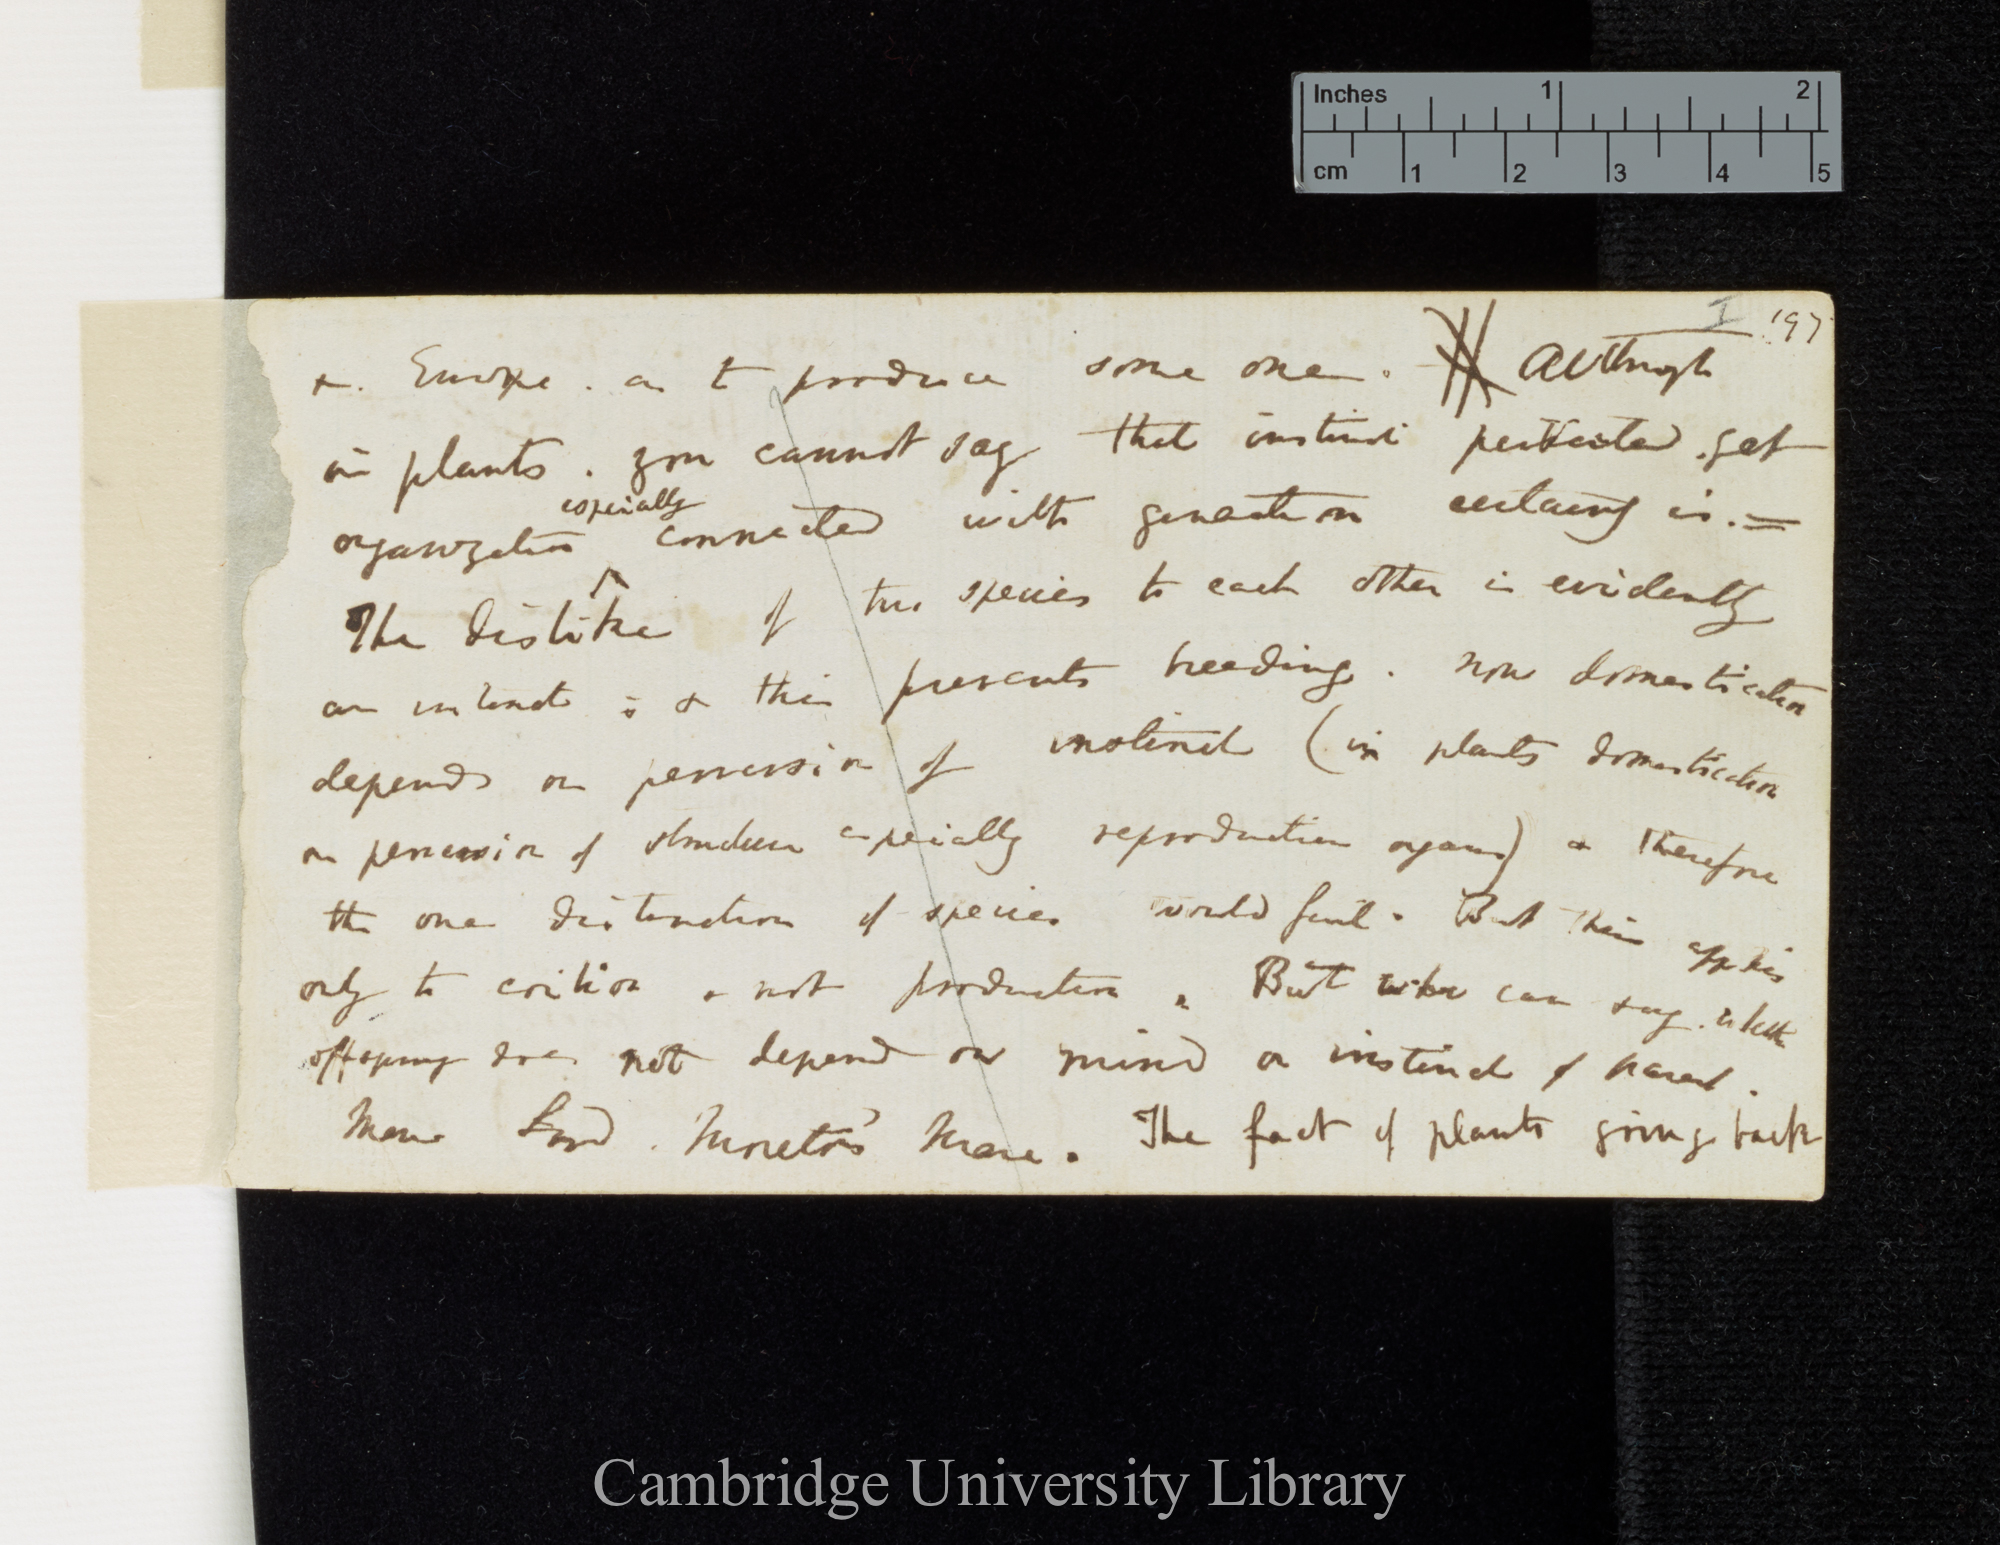 Inches 1 2
cm 1 2 3 4 5
I 197
&. Europe. as to produce some one. Although
in plants. you cannot say that instinct perverted. yet
organization especially connected with generation certainly is. =
The dislike of two species to each other is evidently
an instinct; & this prevents breeding. now domestication
depends on perversion of instinct (in plants domestication
on perversion of structure especially reproductive organs) & therefore
the one distinction of species would fail. But this applies
only to coition & not production. But who can say. whether
offspring does not depend on mind or instinct of parent.
Mem Lord Moreton's Mare. The fact of plants going back
Cambridge University Library